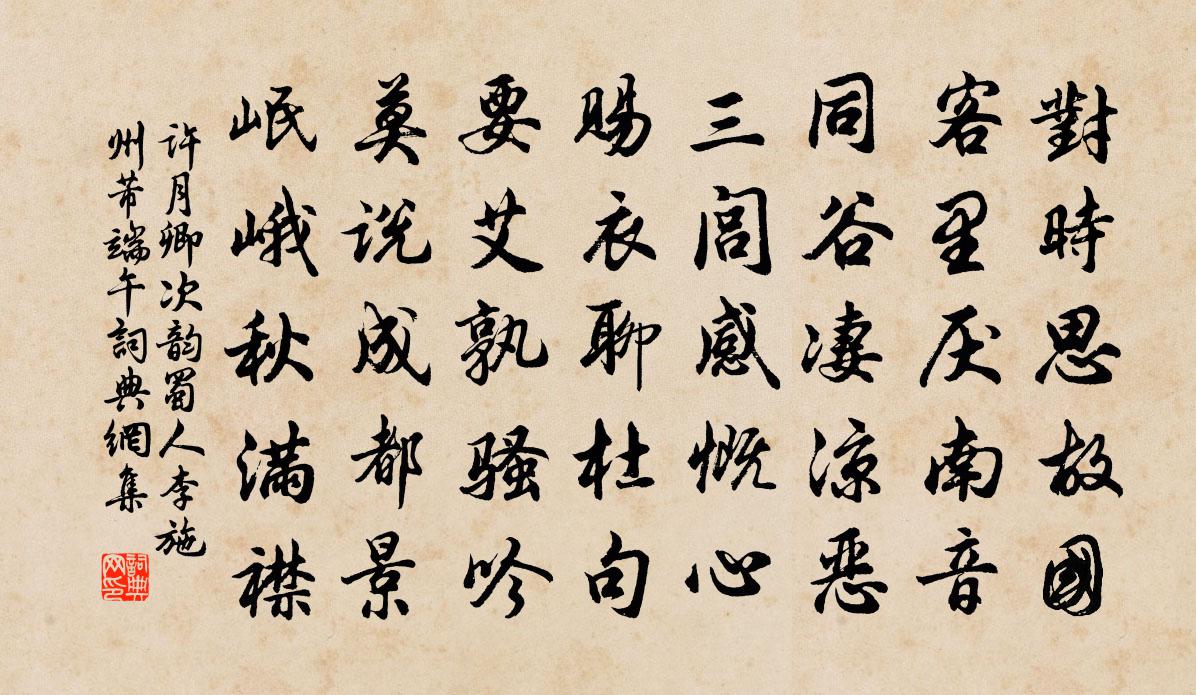 對時思故國
客里厌南音
同谷凄凉惡
三閭感慨心
賜衣聊杜句
要艾孰騷吟
莫说成都景
岷峨秋满襟
许月卿次韵蜀人李施
州芾端午詞典網集
詞典
网印